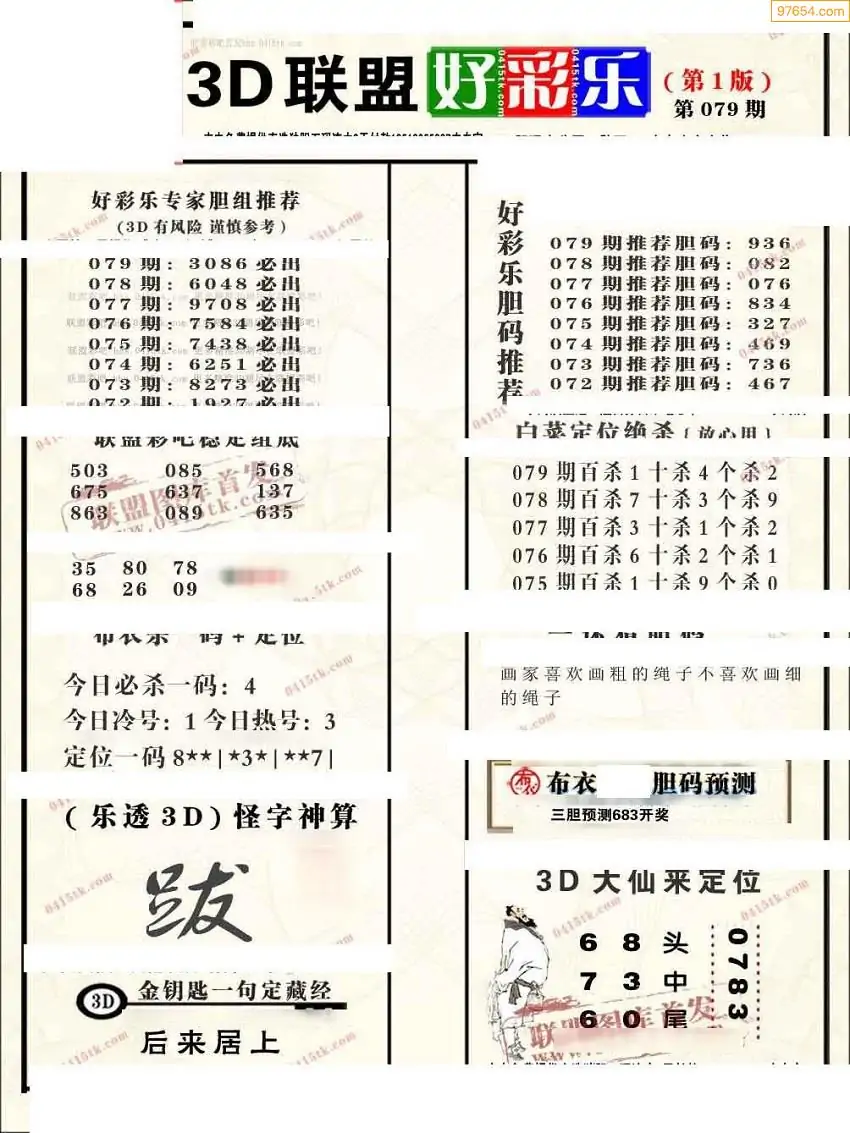 97654.com
3D联盟好彩乐
(第1版)
第079期
好彩乐专家胆组推荐
(3D有风险 谨慎参考)
079期:3086必出
078期:6048必出
077期:9708必出
076期:7584必出
075期:7438必出
074期:6251必出
073期:8273必出
072期:1927必出
联盟彩吧稳定组底
503 085 568
675 637 137
863 089 635
联盟图库首发
www.0415tk.com
35 80 78
68 26 09
布衣杀一码+定位
今日必杀一码:4
今日冷号:1 今日热号:3
定位一码 8**|*3*|**7|
(乐透3D)怪字神算
跋
3D 金钥匙一句定藏经
后来居上
好彩乐胆码推荐
079期推荐胆码:936
078期推荐胆码:082
077期推荐胆码:076
076期推荐胆码:834
075期推荐胆码:327
074期推荐胆码:469
073期推荐胆码:736
072期推荐胆码:467
白菜定位绝杀(放心用)
079期百杀1十杀4个杀2
078期百杀7十杀3个杀9
077期百杀3十杀1个杀2
076期百杀6十杀2个杀1
075期百杀1十杀9个杀0
画家喜欢画粗的绳子不喜欢画细
的绳子
布衣 胆码预测
三胆预测683开奖
3D大仙来定位
6 8 头
7 3 中
6 0 尾
0783
联盟图库首发